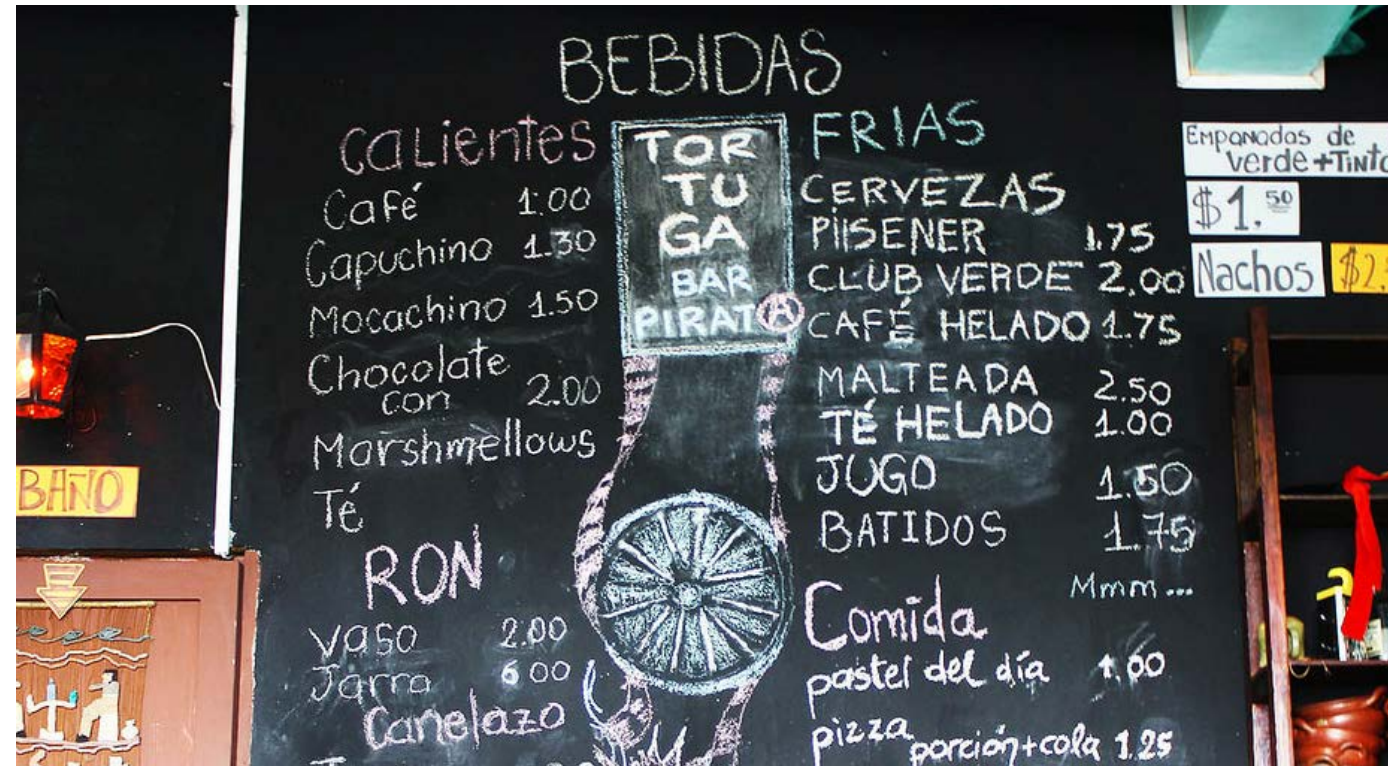 BEBIDAS
CALIENTES
Café 1.00
Capuchino 1.30
Mocachino 1.50
Chocolate
con 2.00
Marshmellows
Té
RON
vaso 2.00
Jarra 6.00
Canelazo
TOR
TU
GA
BAR
PIRATA
FRIAS
CERVEZAS
PIlSENER 1.75
CLUB VERDE 2.00
CAFÉ HELADO 1.75
MALTEADA 2.50
TÉ HELADO 1.00
JUGO 1.50
BATIDOS 1.75
Mmm...
Comida
pastel del día 1.00
pizza
porción+cola 1.25
Empanadas de
verde+Tinto
$1.50
Nachos
BAÑO